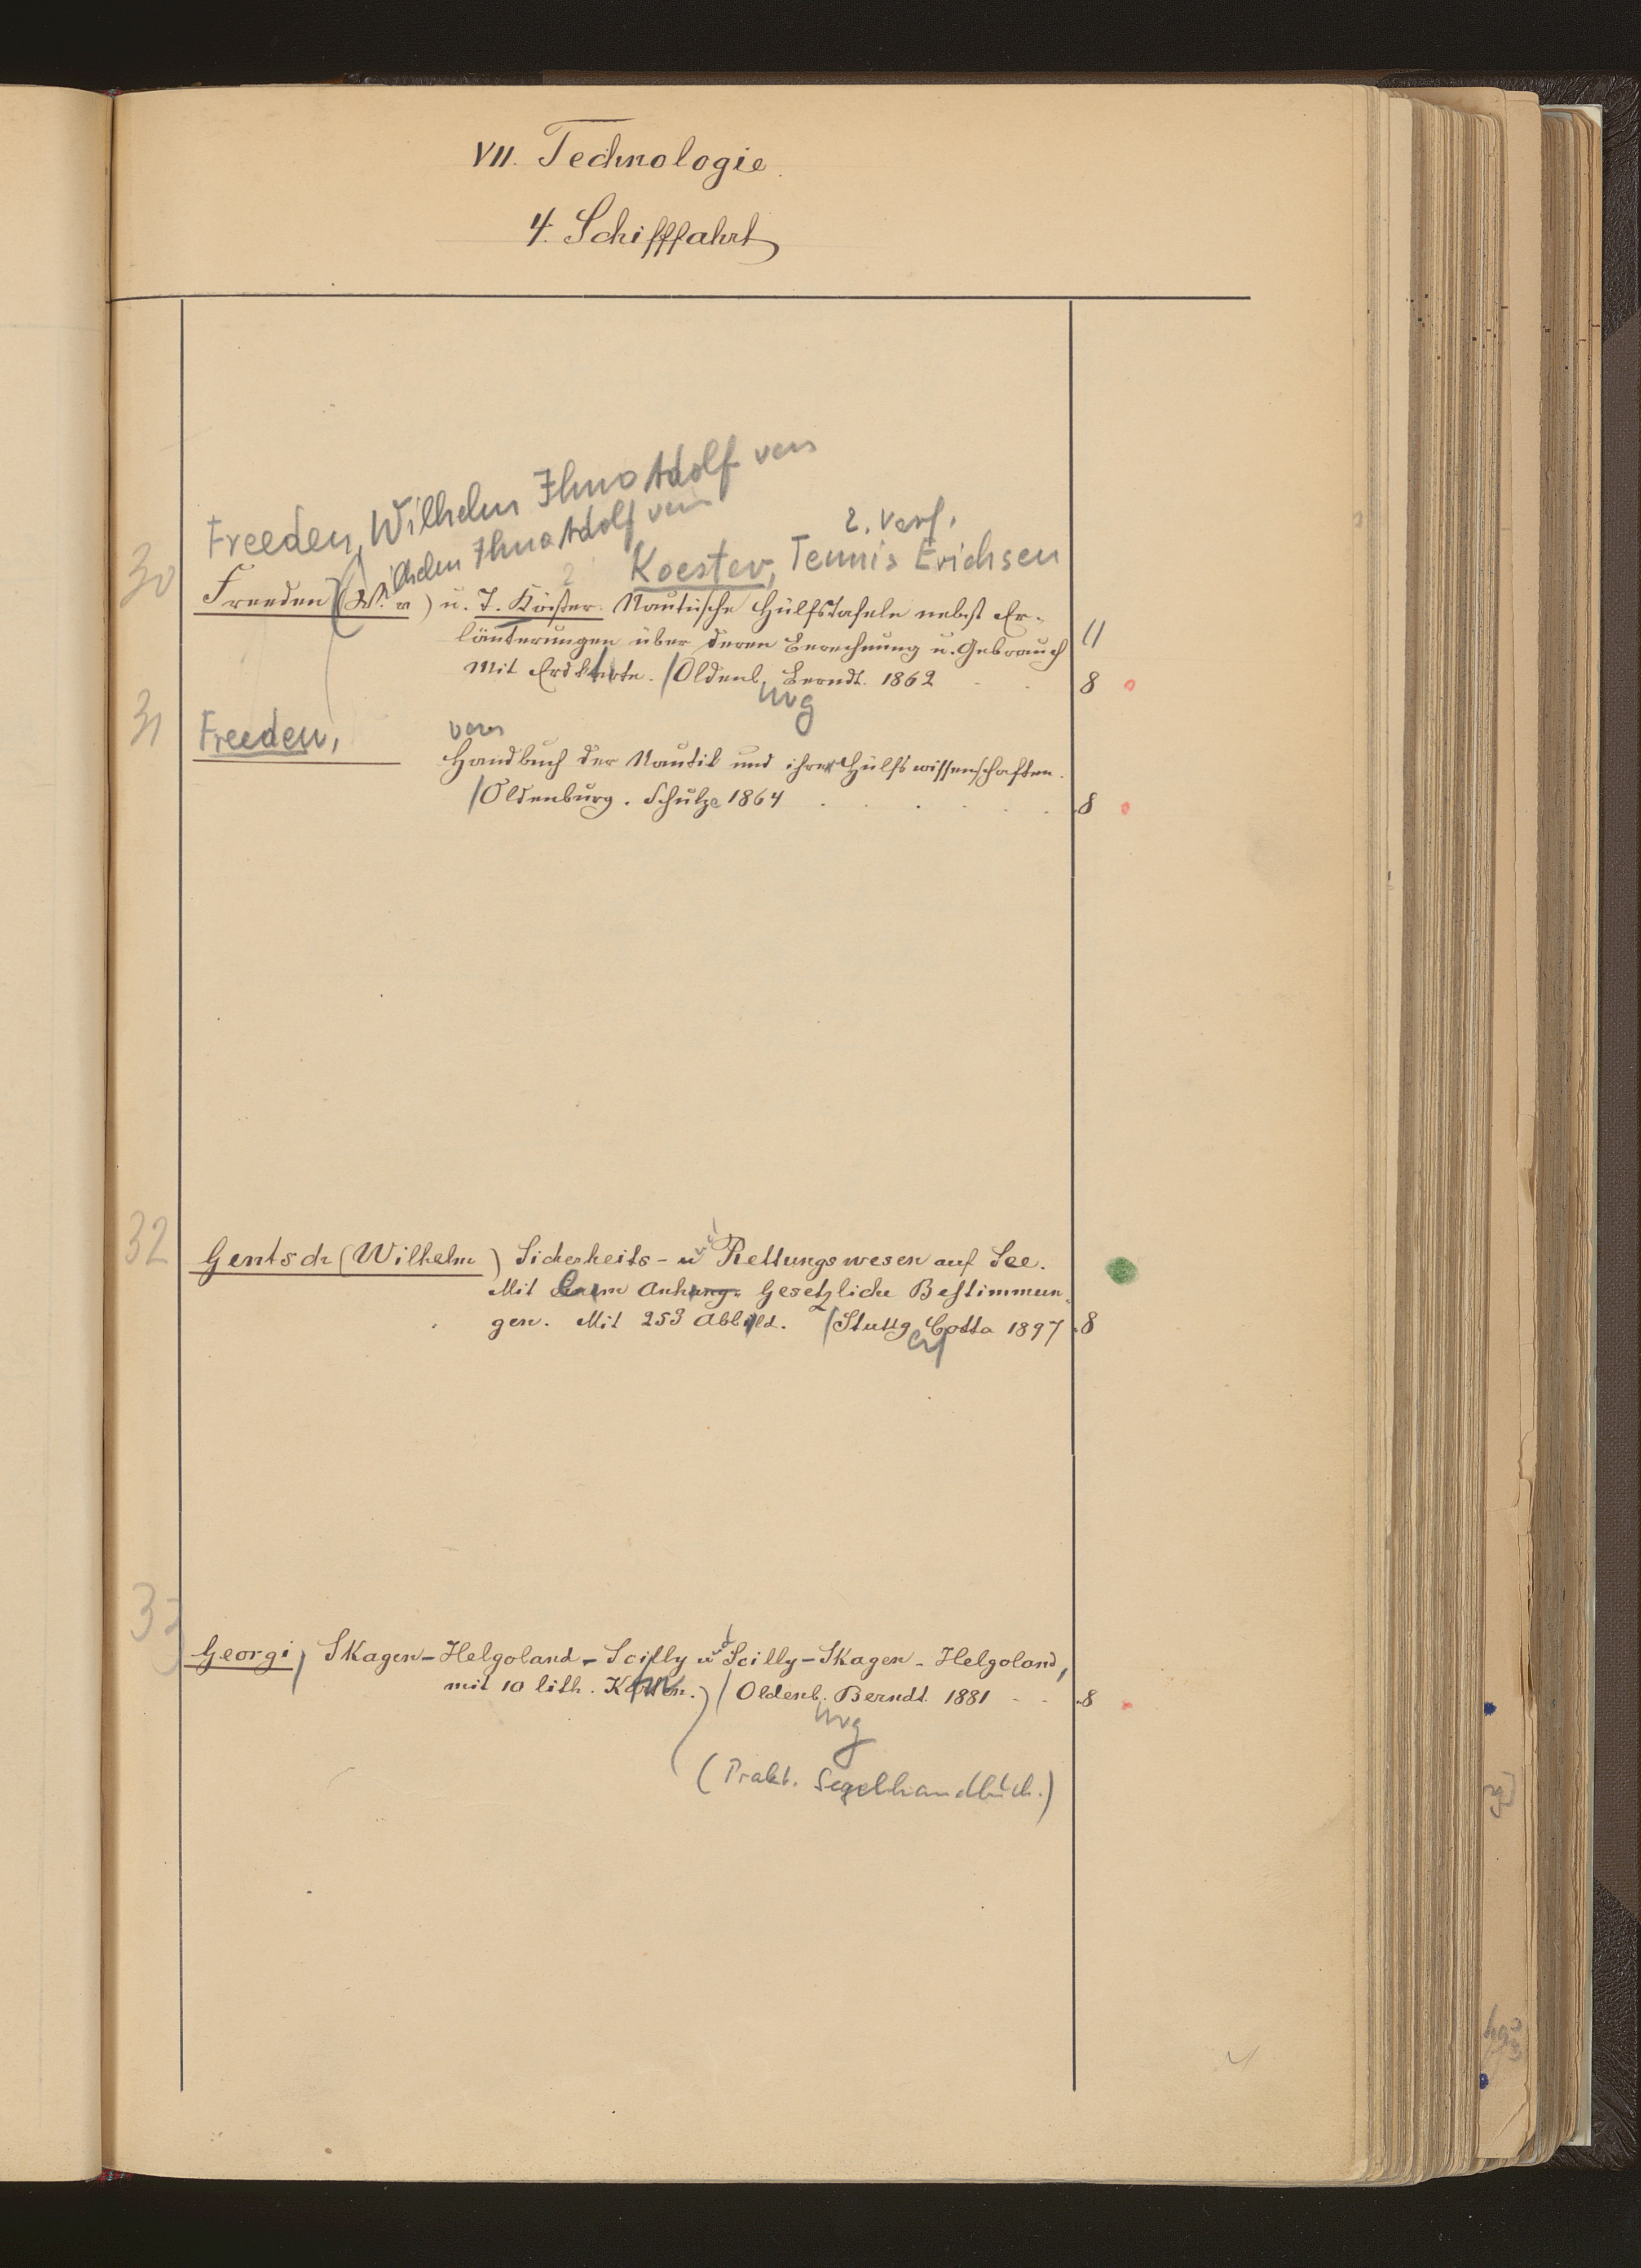 VII. Technologie.
4. Schifffahrt
Freeden, Wilhelm Ihno Adolf von
ilhelm Ihno Adolf von
2. Verf.
Koester, Tennis Erichsen
30
Freeden (W. v) u. T. Köster. Nautische Hülfstafeln nebst Er-
läuterungen über deren Berechnung u. Gebrauch
Mit Erdkarte. / Oldenb. Berndt. 1862 8
urg
31 Freeden, von
Handbuch der Nautik und ihrer Hülfswissenschaften.
/ Oldenburg. Schulze 1864 8
32
Gentsch (Wilhelm) Sicherheits- u Rettungswesen auf See.
Mit Anhang. Gesetzliche Bestimmun-
gen. Mit 253 Abbild. / Stuttg Cotta 1897 8
33
Georgi, Skagen-Helgoland-Scilly u Scilly-Skagen-Helgoland,
mit 10 lith. Karten. / Oldenb. Berndt. 1881 8
urg
(Prakt. Segelhandbuch.)